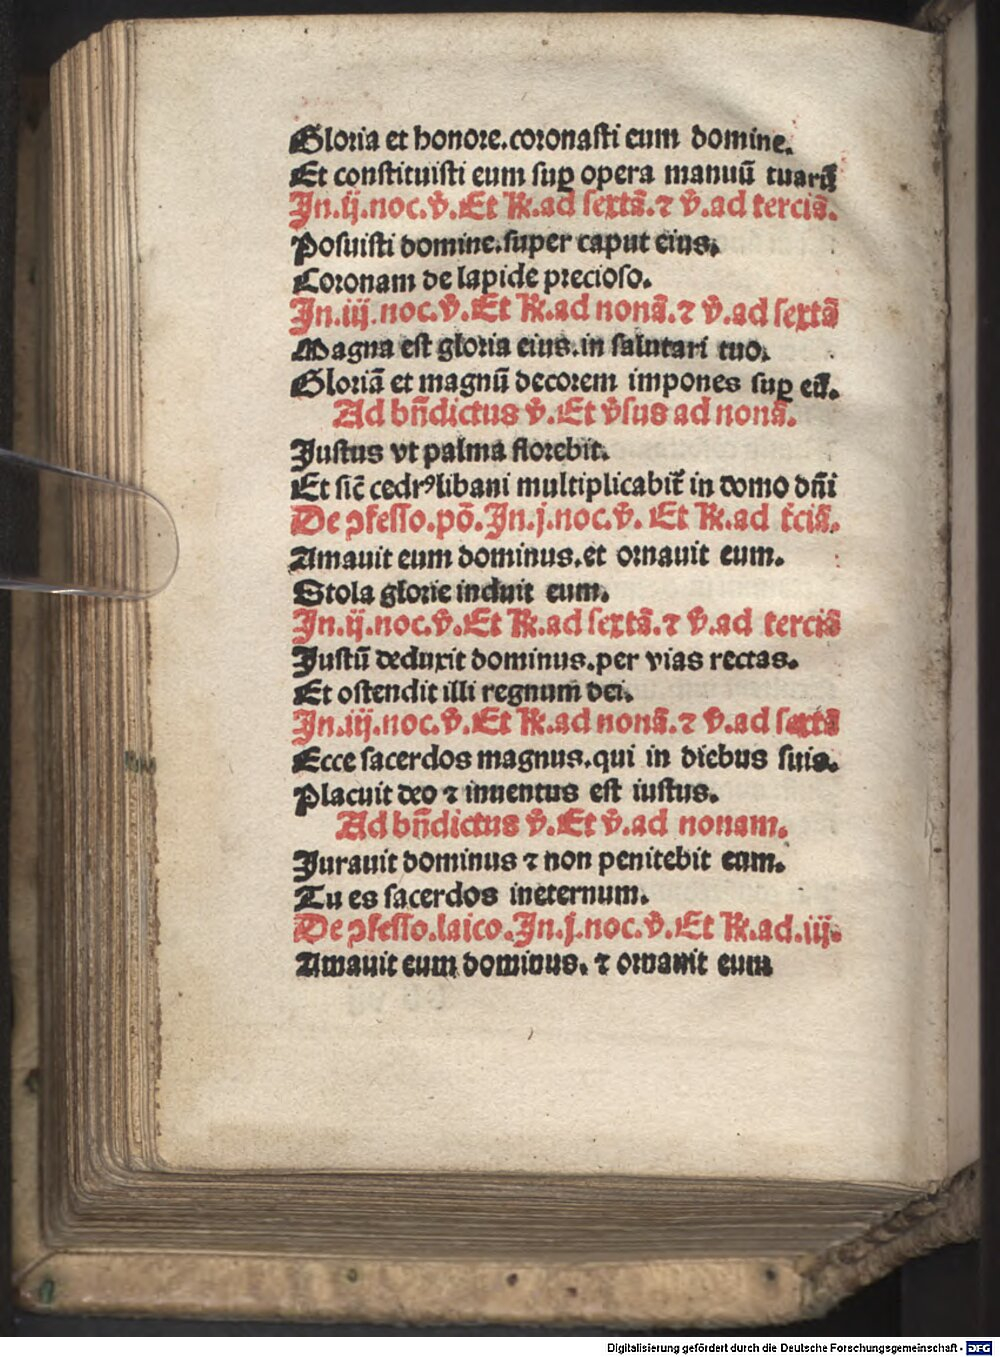 Gloria et honore.coronasti eum domine.
Et constituisti eum suꝑ opera manuū tuarū
In.ij.noc.v̄.Et ℟.ad sextā.⁊ v̄.ad terciā.
Posuisti domine.super caput eius.
Coronam de lapide precioso.
In.iij.noc.v̄.Et ℟.ad nonā.⁊ v̄.ad sextā
Magna est gloria eius.in salutari tuo.
Gloriā et magnū decorem impones suꝑ eū.
Ad bn̄dictus v̄.Et v̄sus ad nonā.
Justus vt palma florebit.
Et sic̄ cedrꝰ libani multiplicabit᷑ in domo dn̄i
De ꝯfesso.pō.In.j.noc.v̄. Et ℟.ad t̄ciā.
Amauit eum dominus.et ornauit eum.
Stola glorie induit eum.
In.ij.noc.v̄.Et ℟.ad sextā.⁊ v̄.ad terciā
Justū deduxit dominus.per vias rectas.
Et ostendit illi regnum dei.
In.iij.noc.v̄.Et ℟.ad nonā.⁊ v̄.ad sextā
Ecce sacerdos magnus.qui in diebus suis.
Placuit deo ⁊ inuentus est iustus.
Ad bn̄dictus v̄.Et v̄.ad nonam.
Jurauit dominus ⁊ non penitebit eum.
Tu es sacerdos ineternum.
De ꝯfesso.laico.In.j.noc.v̄.Et ℟.ad.iij.
Amauit eum dominus. ⁊ ornauit eum
Digitalisierung gefördert durch die Deutsche Forschungsgemeinschaft - DFG